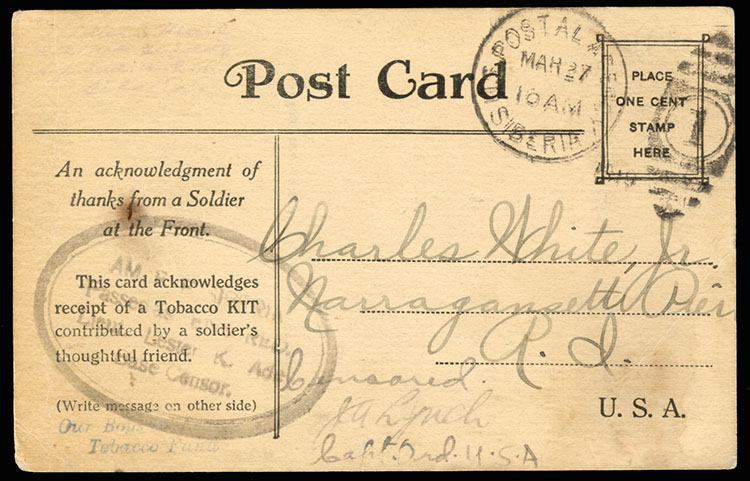 Post Card
U.S. POSTAL AGENCY
MAR 27
10 AM
SIBERIA
1919
1
PLACE
ONE CENT
STAMP
HERE
An acknowledgment of
thanks from a Soldier
at the Front.
This card acknowledges
receipt of a Tobacco KIT
contributed by a soldier's
thoughtful friend.
(Write message on other side)
Our Boys
Tobacco Fund
AM
Passed
Lieut. Lester K. Ade
Base Censor.
Charles White, Jr.
Narragansett Pier
R. I.
U. S. A.
Censored.
J A Lynch
Capt. Ord. U.S.A